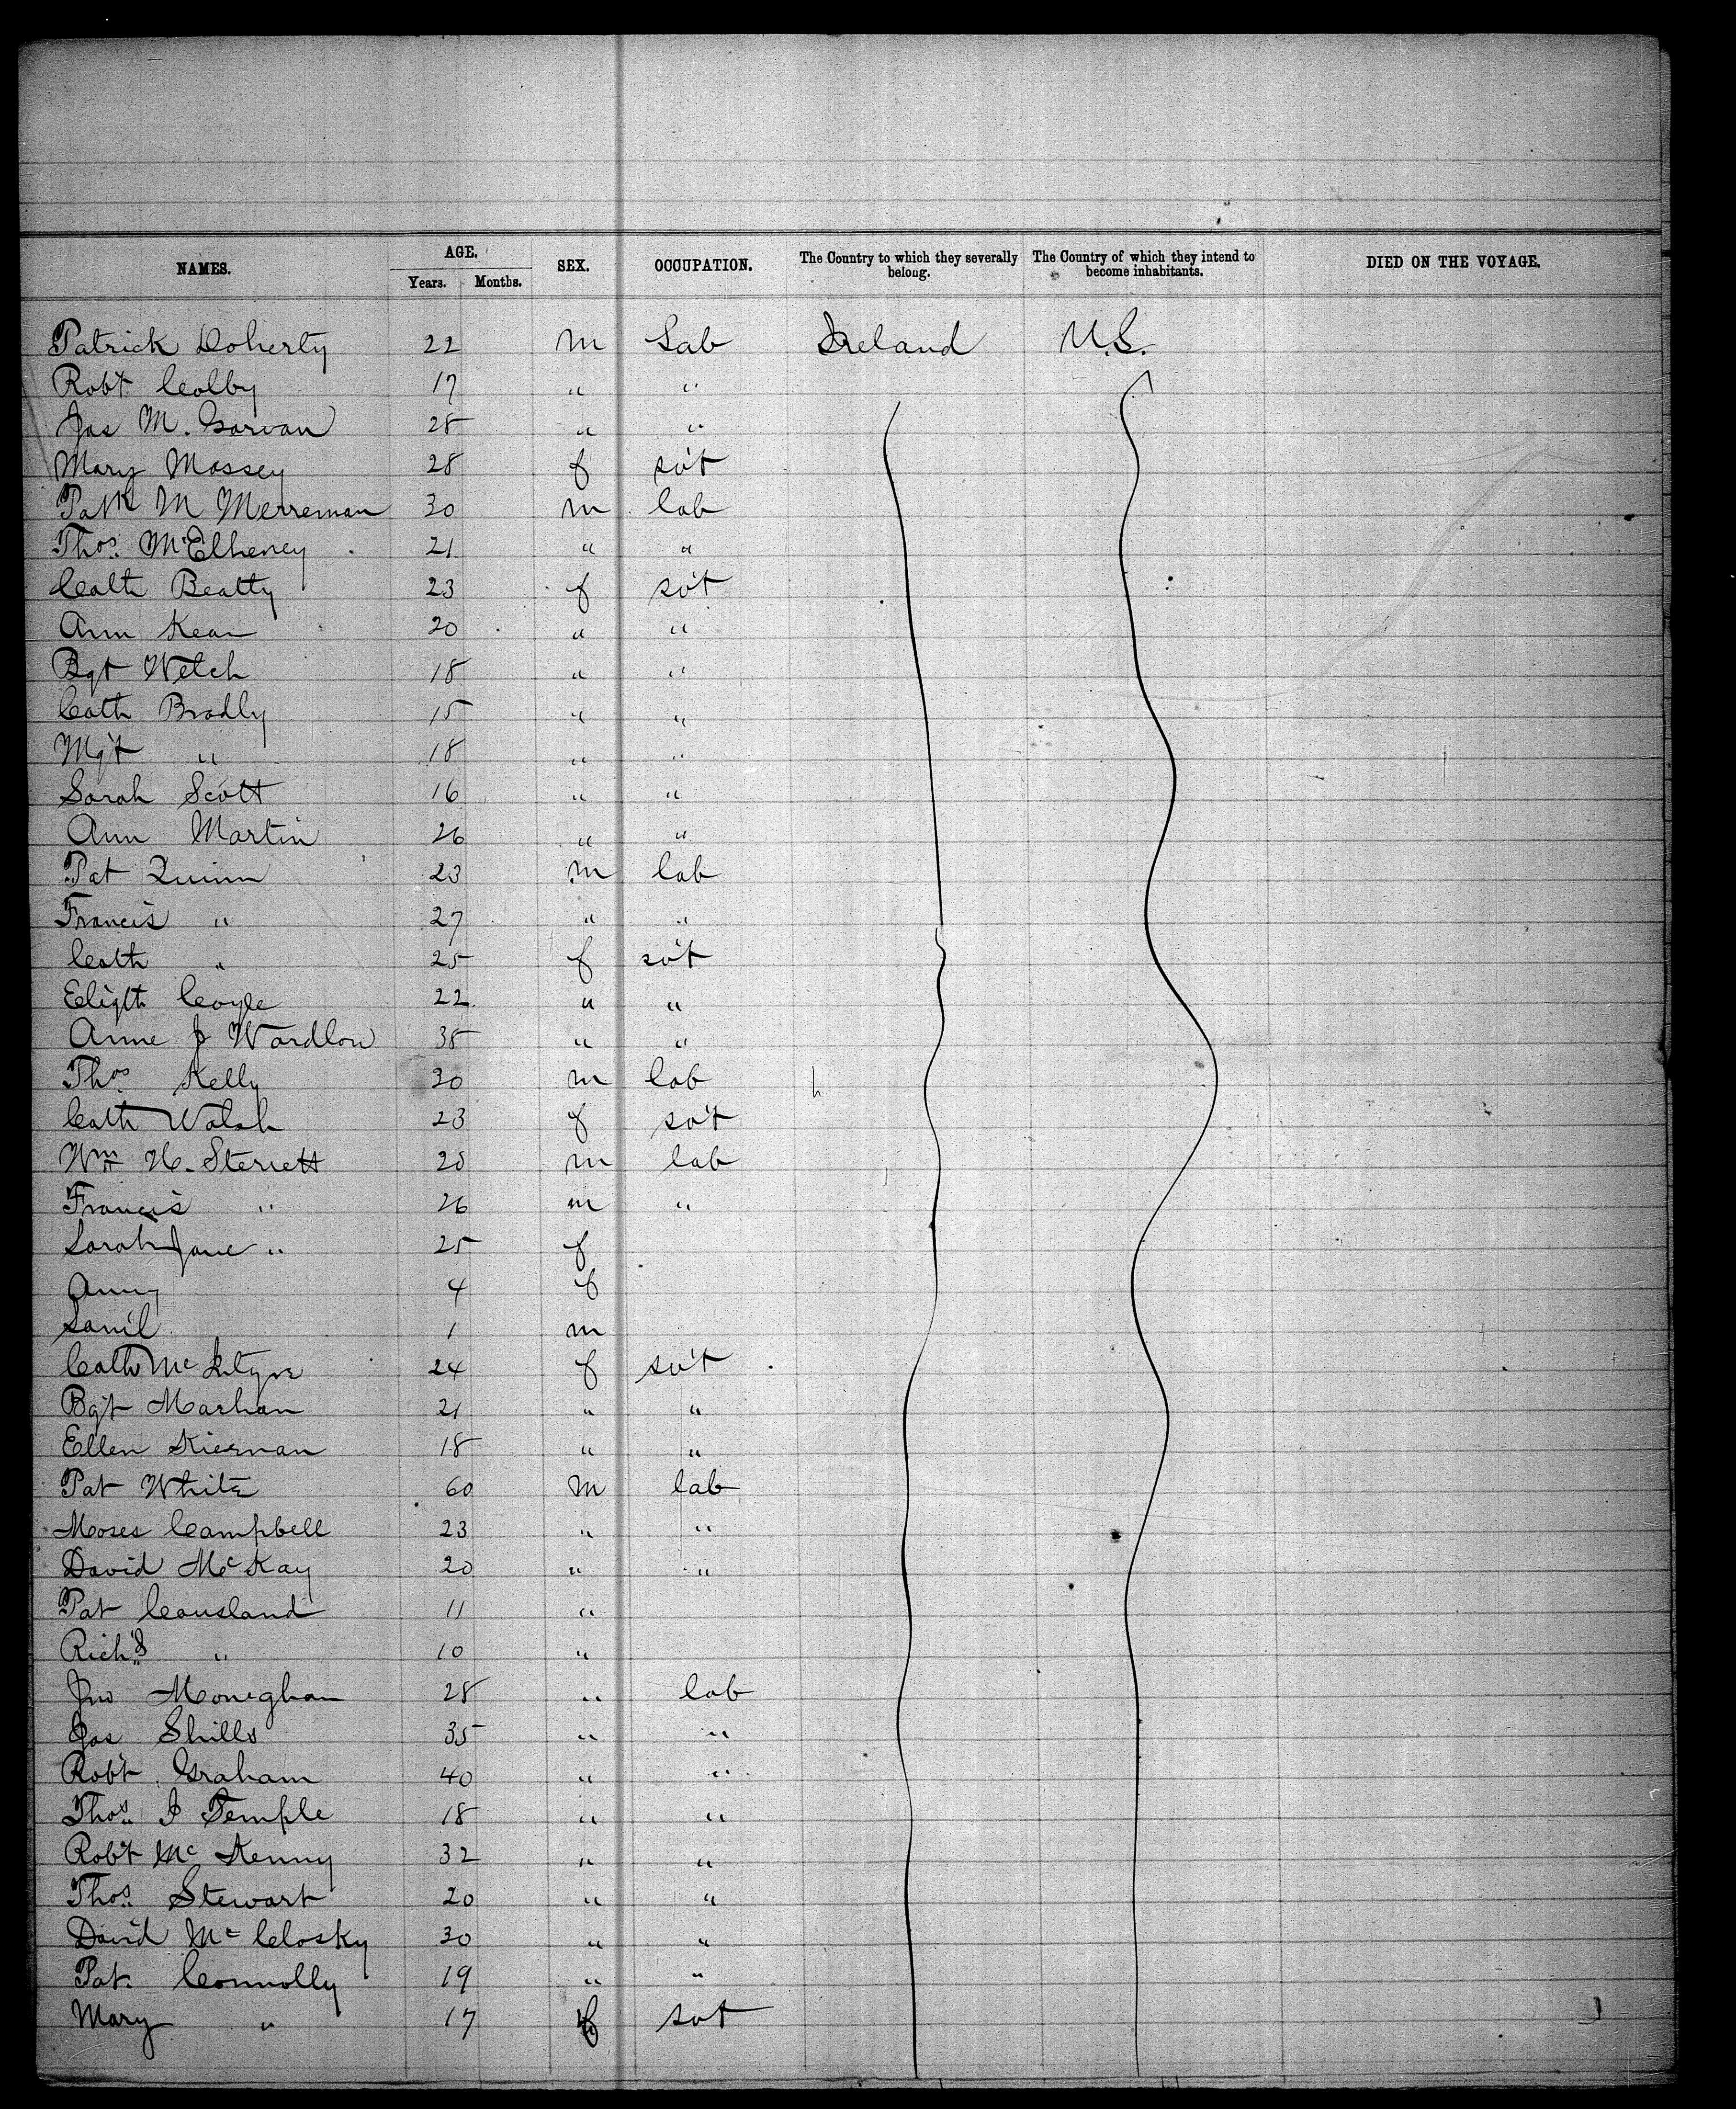 NAMES. AGE. Years. Months. SEX. OCCUPATION. The Country to which they severally belong. The Country of which they intend to become inhabitants. DIED ON THE VOYAGE.
Patrick Doherty 22 m Lab Ireland U.S.
Robt Colby 17 " "
Jas M. Garvan 28 " "
Mary Massey 28 f svt
Patk M Merreman 30 m lab
Thos. McElheney 21 " "
Cath Beatty 23 f svt
Ann Kean 20 " "
Bgt Welch 18 " "
Cath Bradly 15 " "
Mgt " 18 " "
Sarah Scott 16 " "
Ann Martin 26 " "
Pat Quinn 23 m lab
Francis " 27 " "
Cath " 25 f svt
Elizth Coyle 22 " "
Anne J Wardlow 35 " "
Thos Kelly 30 m lab
Cath Walsh 23 f svt
Wm H. Sterrett 28 m lab
Francis " 26 m "
Sarah Jane " 25 f
Anny 4 f
Saml 1 m
Cath McIntyre 24 f svt
Bgt Marhan 21 " "
Ellen Kiernan 18 " "
Pat White 60 m lab
Moses Campbell 23 " "
David McKay 20 " "
Pat Cousland 11 "
Richd " 10 "
Jno Moneghan 28 " lab
Jas Shills 35 " "
Robt Graham 40 " "
Thos. J Temple 18 " "
Robt Mc Kenny 32 " "
Thos. Stewart 20 " "
David Mc Closky 30 " "
Pat. Connolly 19 " "
Mary " 17 f svt